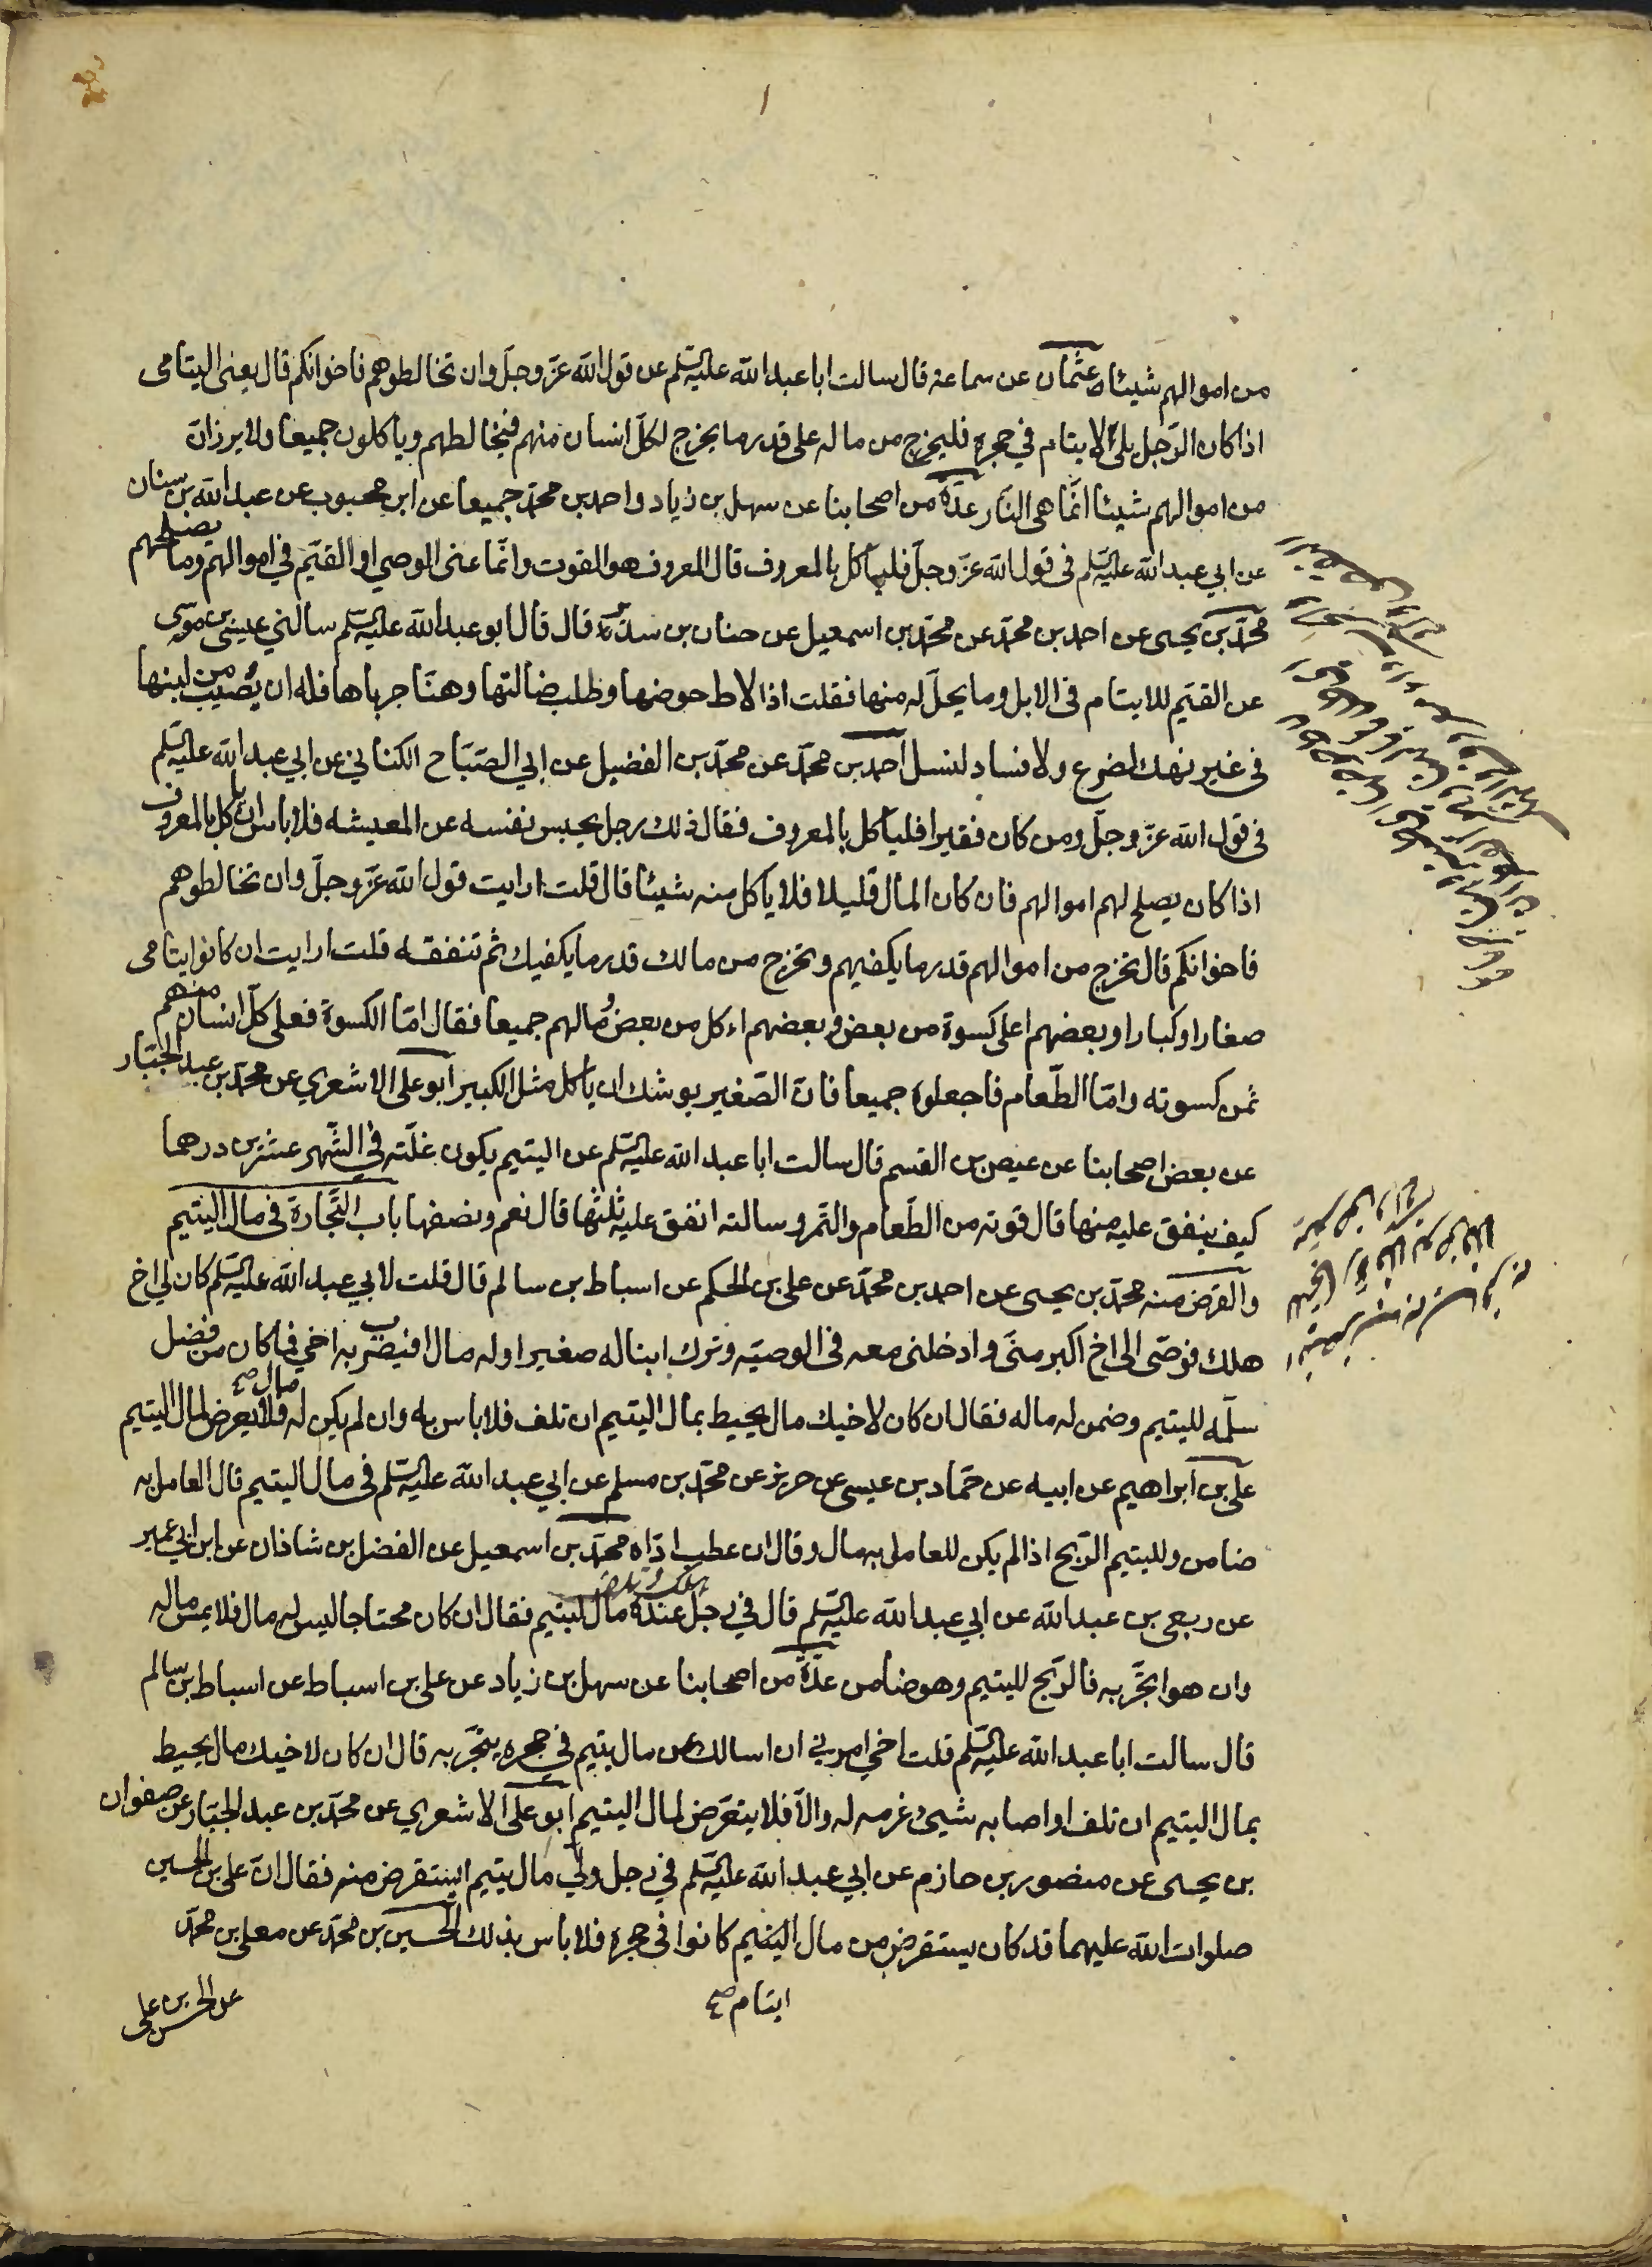 من اموالهم شيئا عثمان عن سماعة قال سالت ابا عبد الله عليه السلم عن قول الله عز وجل وان تخالطوهم فاخوانكم قال يعنى اليتامى
اذا كان الرجل يلى الايتام في حجره فليخرج من ماله على قدر ما يخرج لكل انسان منهم فيخالطهم وياكلون جميعا ولا يرزان
من اموالهم شيئا انما هى النار عدة من اصحابنا عن سهل بن زياد واحمد بن محمد جميعا عن ابن محبوب عن عبد الله بن سنان
عن ابي عبد الله عليه السلم فى قول الله عز وجل فلياكل بالمعروف قال المعروف هو القوت وانما عنى الوصي او القيم في اموالهم وما يصلحهم
محمد بن يحيى عن احمد بن محمد عن محمد بن اسمعيل عن حنان بن سدير قال قال ابو عبد الله عليه السلم سالني عيسى بن موسى
عن القيم للايتام فى الابل وما يحل له منها فقلت اذا لاط حوضها وطلب ضالتها وهنا جرباها فله ان يصيب من لبنها
فى غير نهك لضرع ولا فساد لنسل احمد بن محمد عن محمد بن الفضيل عن ابي الصباح الكناني عن ابي عبد الله عليه السلم
فى قول الله عز وجل ومن كان فقيرا فلياكل بالمعروف فقال ذلك رجل يحبس نفسه عن المعيشه فلا باس ان ياكل بالمعروف
اذا كان يصلح لهم اموالهم فان كان المال قليلا فلا ياكل منه شيئا قال قلت ارايت قول الله عز وجل وان تخالطوهم
فاخوانكم قال تخرج من اموالهم قدر ما يكفيهم وتخرج من مالك قدر ما يكفيك ثم تنفقه قلت ارايت ان كانوا يتامى
صغارا وكبارا وبعضهم اعلى كسوة من بعض وبعضهم اءكل من بعض ومالهم جميعا فقال اما الكسوة فعلى كل انسان منهم
ثمن كسوته واما الطعام فاجعلوه جميعا فان الصغير يوشك ان ياكل مثل الكبير ابو على الاشعري عن محمد بن عبد الجبار
عن بعض اصحابنا عن عيص بن القسم قال سالت ابا عبد الله عليه السلم عن اليتيم يكون غلته في الشهر عشرين درهما
كيف ينفق عليه منها قال قوته من الطعام والتمر وسالته انفق عليه ثلثها قال نعم ونصفها باب التجارة فى مال اليتيم
والقرض منه محمد بن يحيى عن احمد بن محمد عن على بن الحكم عن اسباط بن سالم قال قلت لابي عبد الله عليه السلم كان لي اخ
هلك فوصى الى اخ اكبر منى وادخلنى معه فى الوصيه وترك ابنا له صغيرا وله مال افيضرب به اخي فما كان من فضل
سلمه لليتيم وضمن له ماله فقال ان كان لاخيك مال يحيط بمال اليتيم ان تلف فلا باس به وان لم يكن له مال صح فلا يعرض لمال اليتيم
على بن ابراهيم عن ابيه عن حماد بن عيسى عن حريز عن محمد بن مسلم عن ابي عبد الله عليه السلم فى مال اليتيم قال العامل به
ضامن ولليتيم الربح اذا لم يكن للعامل به مال وقال ان عطب اداه محمد بن اسمعيل عن الفضل بن شاذان عن ابن ابي عمير
عن ربعى بن عبد الله عن ابي عبد الله عليه السلم قال في رجل عنده مال ليتيم فقال ان كان محتاجا ليس له مال فلا يمس ماله
وان هو اتجر به فالربح لليتيم وهو ضامن عدة من اصحابنا عن سهل بن زياد عن على بن اسباط عن اسباط بن سالم
قال سالت ابا عبد الله عليه السلم قلت اخي امرني ان اسالك عن مال يتيم في حجره يتجر به قال ان كان لاخيك مال يحيط
بمال اليتيم ان تلف او اصابه شيئ غرمه له والا فلا يتعرض لمال اليتيم ابو على الاشعري عن محمد بن عبد الجبار عن صفوان
بن يحيى عن منصور بن حازم عن ابي عبد الله عليه السلم في رجل ولي مال يتيم ايستقرض منه فقال ان على بن الحسين
صلوات الله عليهما قد كان يستقرض من مال اليتيم كانوا في حجره فلا باس بذلك الحسين بن محمد عن معلى بن محمد
ايتام صح
عن الحسن بن على